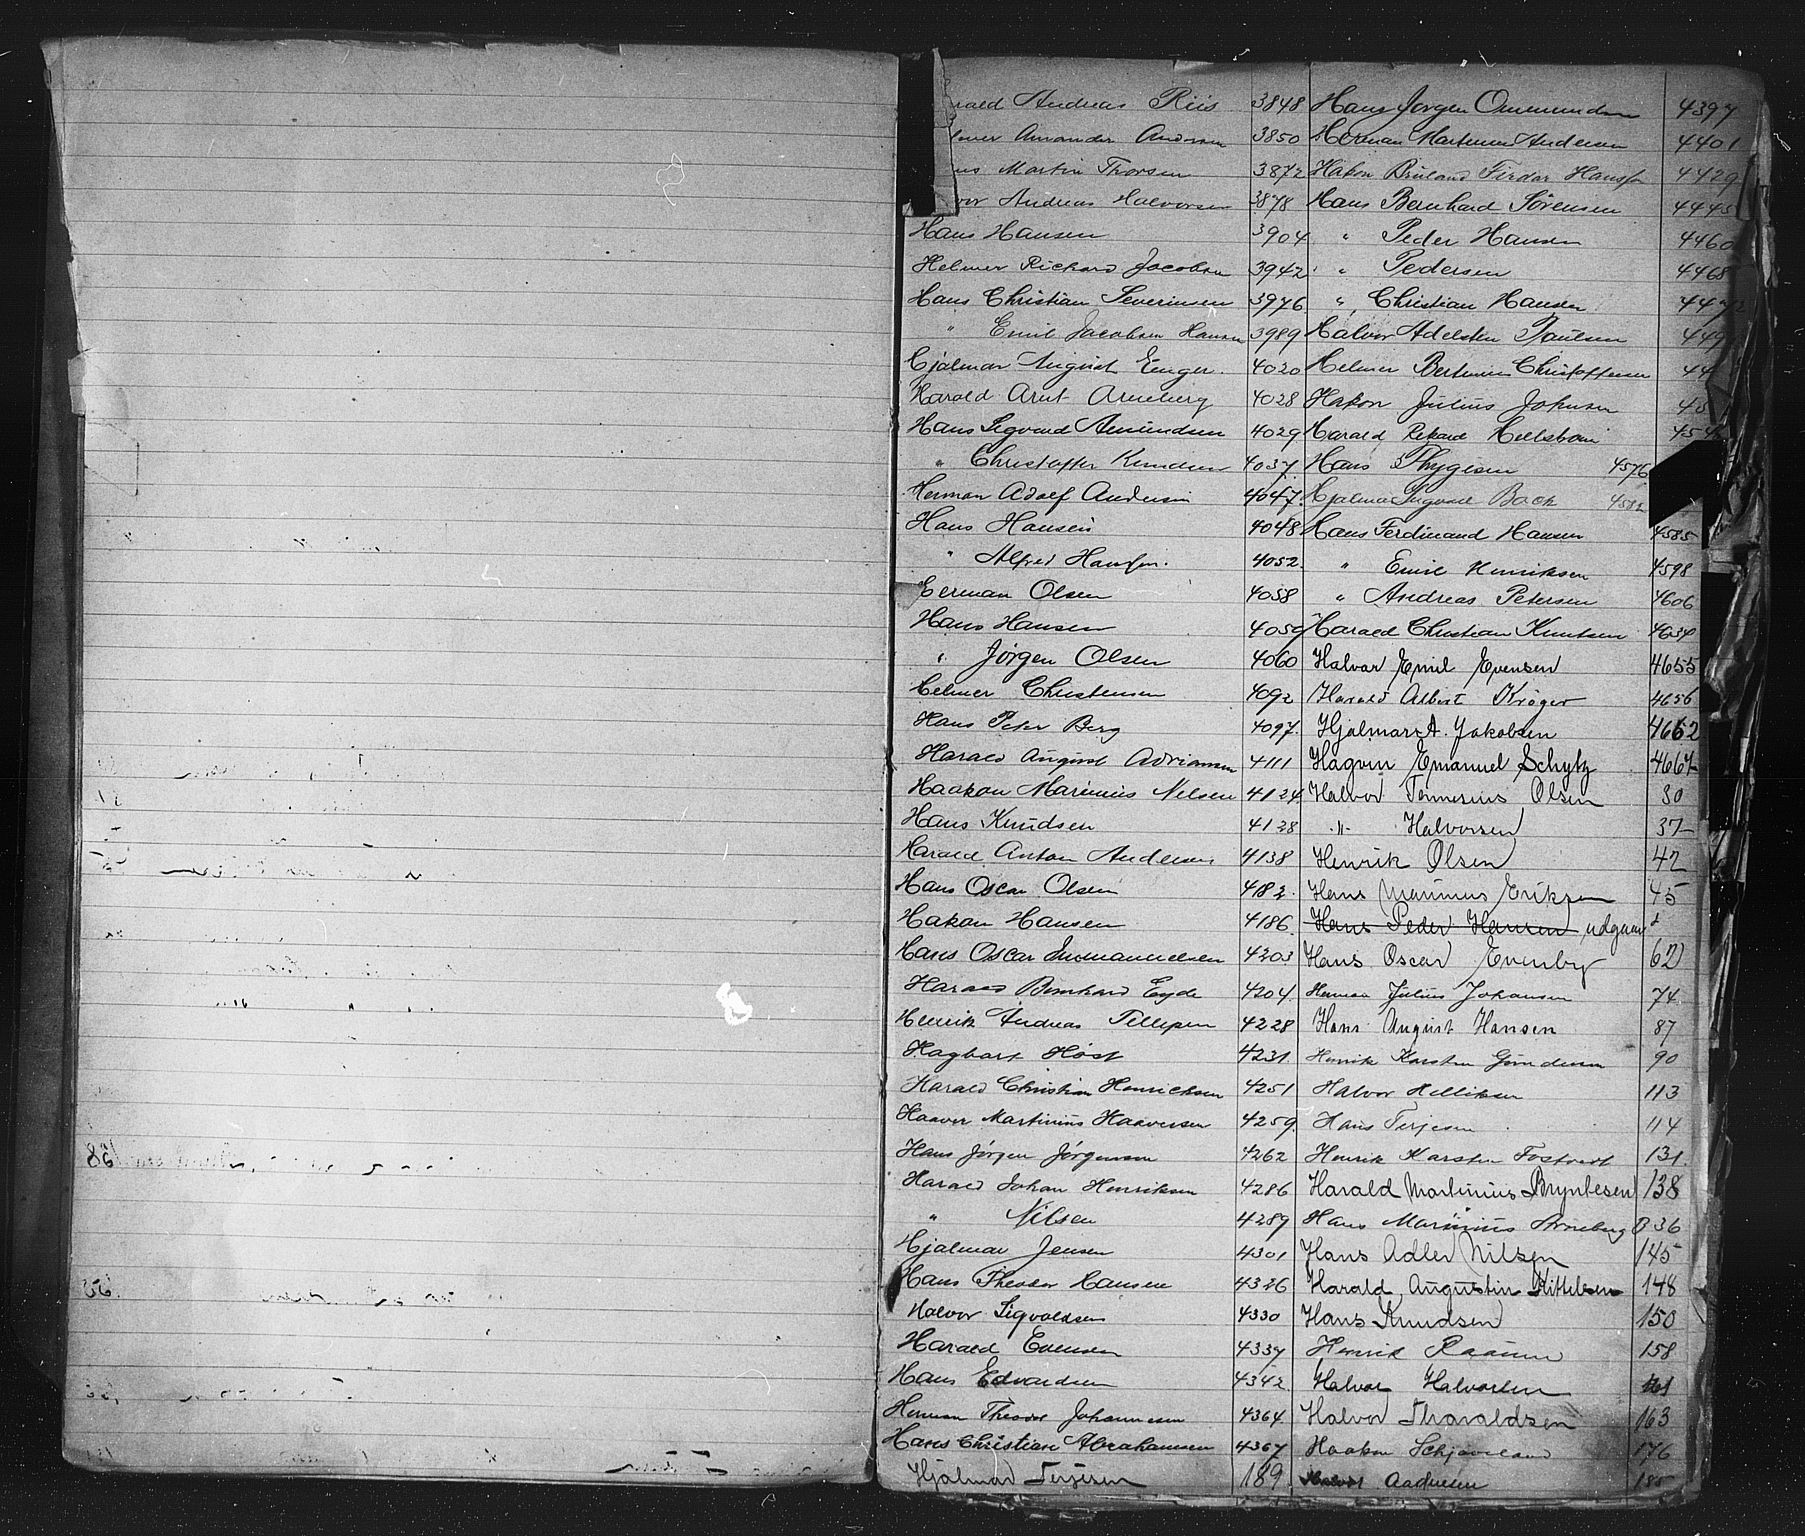 Andreas Riis 3848
Amandus 3850
Martin Thorsen 3872
Andreas Halvorsen 3878
Hans Hansen 3904
Helmer Richard Jacobsen 3942
Hans Christian Severinsen 3976
" Emil Jacobsen Hansen 3989
Hjalmar August Enger 4020
Harald Arnt Arneberg 4028
Hans Sigvard Amundsen 4029
" Christoffer Knudsen 4037
Herman Adolf Andersen 4047
Hans Hansen 4048
" Alfred Hansen 4052
Herman Olsen 4058
Hans Hansen 4059
" Jørgen Olsen 4060
Helmer Christensen 4092
Hans Peter Berg 4097
Harald August Adriansen 4111
Haakon Marinius Nilsen 4124
Hans Knudsen 4128
Harald Anton Andersen 4138
Hans Oscar Olsen 4182
Hakon Hansen 4186
Hans Oscar Emanuelsen 4203
Harald Bernhard Eyde 4204
Henrik Andreas Tellefsen 4228
Hagbart Høst 4231
Harald Christian Henricksen 4251
Haaver Martinius Haaversen 4259
Hans Jørgen Jørgensen 4262
Harald Johan Henriksen 4286
" Nilsen 4289
Hjalmar Jensen 4301
Hans Theodor Hansen 4326
Halvor Sigvaldsen 4330
Harald Evensen 4337
Hans Edvardsen 4342
Herman Theodor Johannesen 4364
Hans Christian Abrahamsen 4367
Hjalmar Terjesen 189
Hans Jørgen 4397
Herman Martinius Andersen 4401
Hakon Firdar Hansen 4429
Hans Bernhard Sørensen 4445
" Peder Hansen 4460
" Pedersen 4468
" Christian Hansen
Halvor Adelsten Paulsen
Helmer Christoffersen
Hakon Julius Johnsen
Harald Rikard
Hans Thygesen 4576
Hjalmar Sigvald Back 4582
Hans Ferdinand Hansen 4585
" Emil Henriksen 4598
" Andreas Petersen 4606
Harald Christian Knutsen 4634
Halvar Emil Evensen 4655
Harald Albert Krøger 4656
Hjalmar A. Jakobsen 4662
Hagvin Emanuel Schytz 4667
Halvor Tønnesius Olsen 30
" Halvorsen 37
Henrik Olsen 42
Hans Marinius Eriksen 45
Hans Peder Hansen udgaar
Hans Oscar Evenby 62
Herman Julius Johansen 74
Hans August Hansen 87
Henrik Karsten Gundersen 90
Halvor Helliksen 113
Hans Terjesen 114
Henrik Karsten Fostvedt 131
Harald Martinius Bryntesen 138
Hans Marinius Arneberg 136
Hans Adler Nilsen 145
Harald Augustin Kittelsen 148
Hans Knudsen 150
Henrik Raaum 158
Halvor Halvorsen 161
Halvor Tharaldsen 163
Haakon Schjaveland 176
Halvor Aadnesen 185